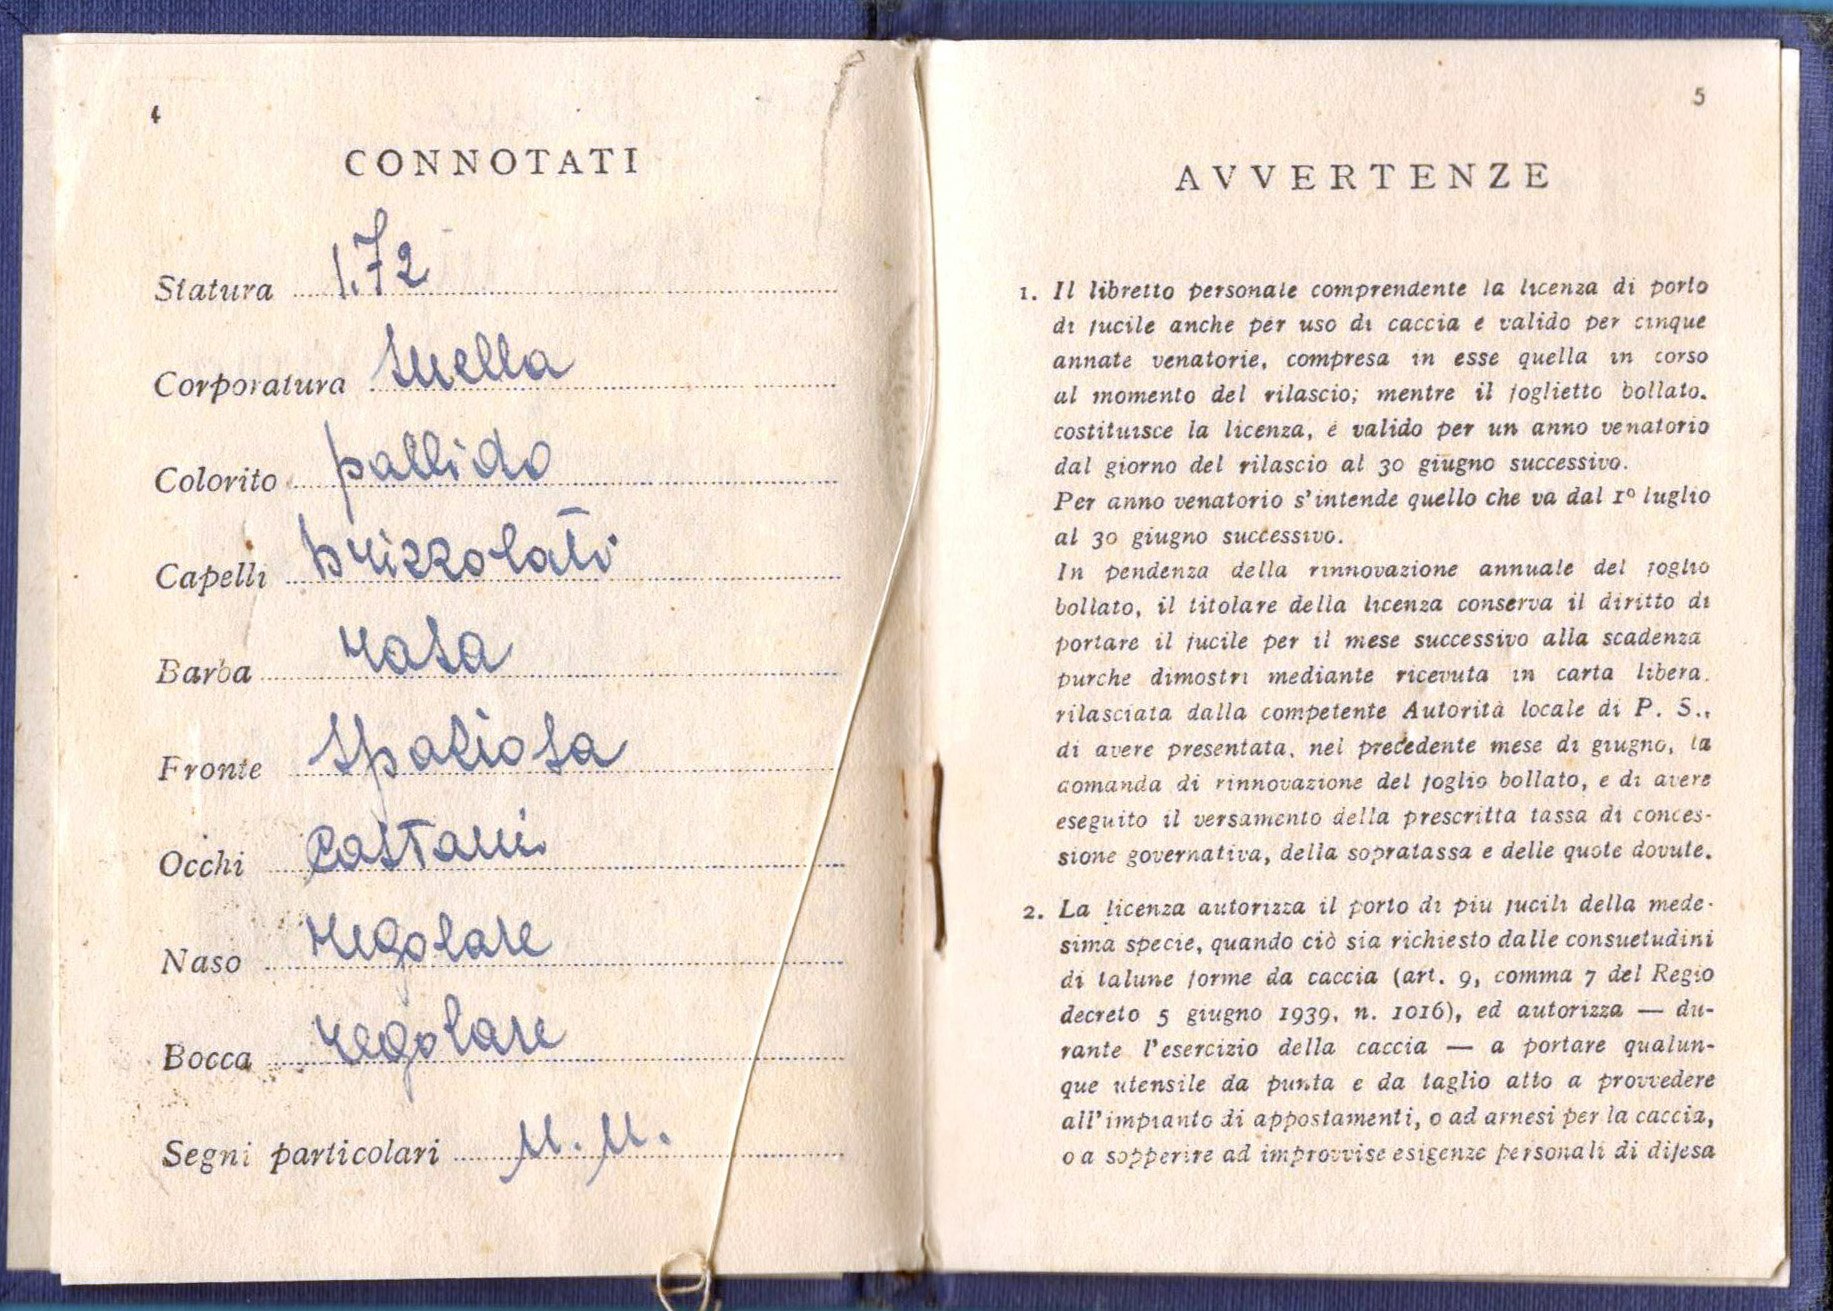 4
CONNOTATI
Statura 1.72
Corporatura snella
Colorito pallido
Capelli brizzolati
Barba rasa
Fronte spaziosa
Occhi castani
Naso regolare
Bocca regolare
Segni particolari N.N.
5
AVVERTENZE
1. Il libretto personale comprendente la licenza di porto
di fucile anche per uso di caccia è valido per cinque
annate venatorie, compresa in esse quella in corso
al momento del rilascio; mentre il foglietto bollato,
costituisce la licenza, è valido per un anno venatorio
dal giorno del rilascio al 30 giugno successivo.
Per anno venatorio s'intende quello che va dal 1º luglio
al 30 giugno successivo.
In pendenza della rinnovazione annuale del foglio
bollato, il titolare della licenza conserva il diritto di
portare il fucile per il mese successivo alla scadenza
purchè dimostri mediante ricevuta in carta libera,
rilasciata dalla competente Autorità locale di P. S.,
di avere presentata, nel precedente mese di giugno, la
domanda di rinnovazione del foglio bollato, e di avere
eseguito il versamento della prescritta tassa di conces-
sione governativa, della sopratassa e delle quote dovute.
2. La licenza autorizza il porto di più fucili della mede-
sima specie, quando ciò sia richiesto dalle consuetudini
di talune forme da caccia (art. 9, comma 7 del Regio
decreto 5 giugno 1939, n. 1016), ed autorizza — du-
rante l'esercizio della caccia — a portare qualun-
que utensile da punta e da taglio atto a provvedere
all'impianto di appostamenti, o ad arnesi per la caccia,
o a sopperire ad improvvise esigenze personali di difesa